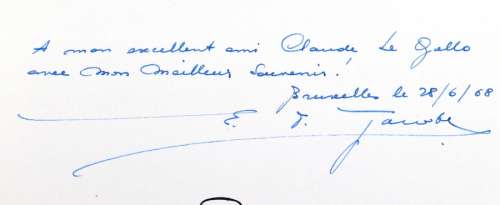 A mon excellent ami Claude Le Gallo
avec mon meilleur souvenir!
Bruxelles le 28/6/68
E. P. Jacobs